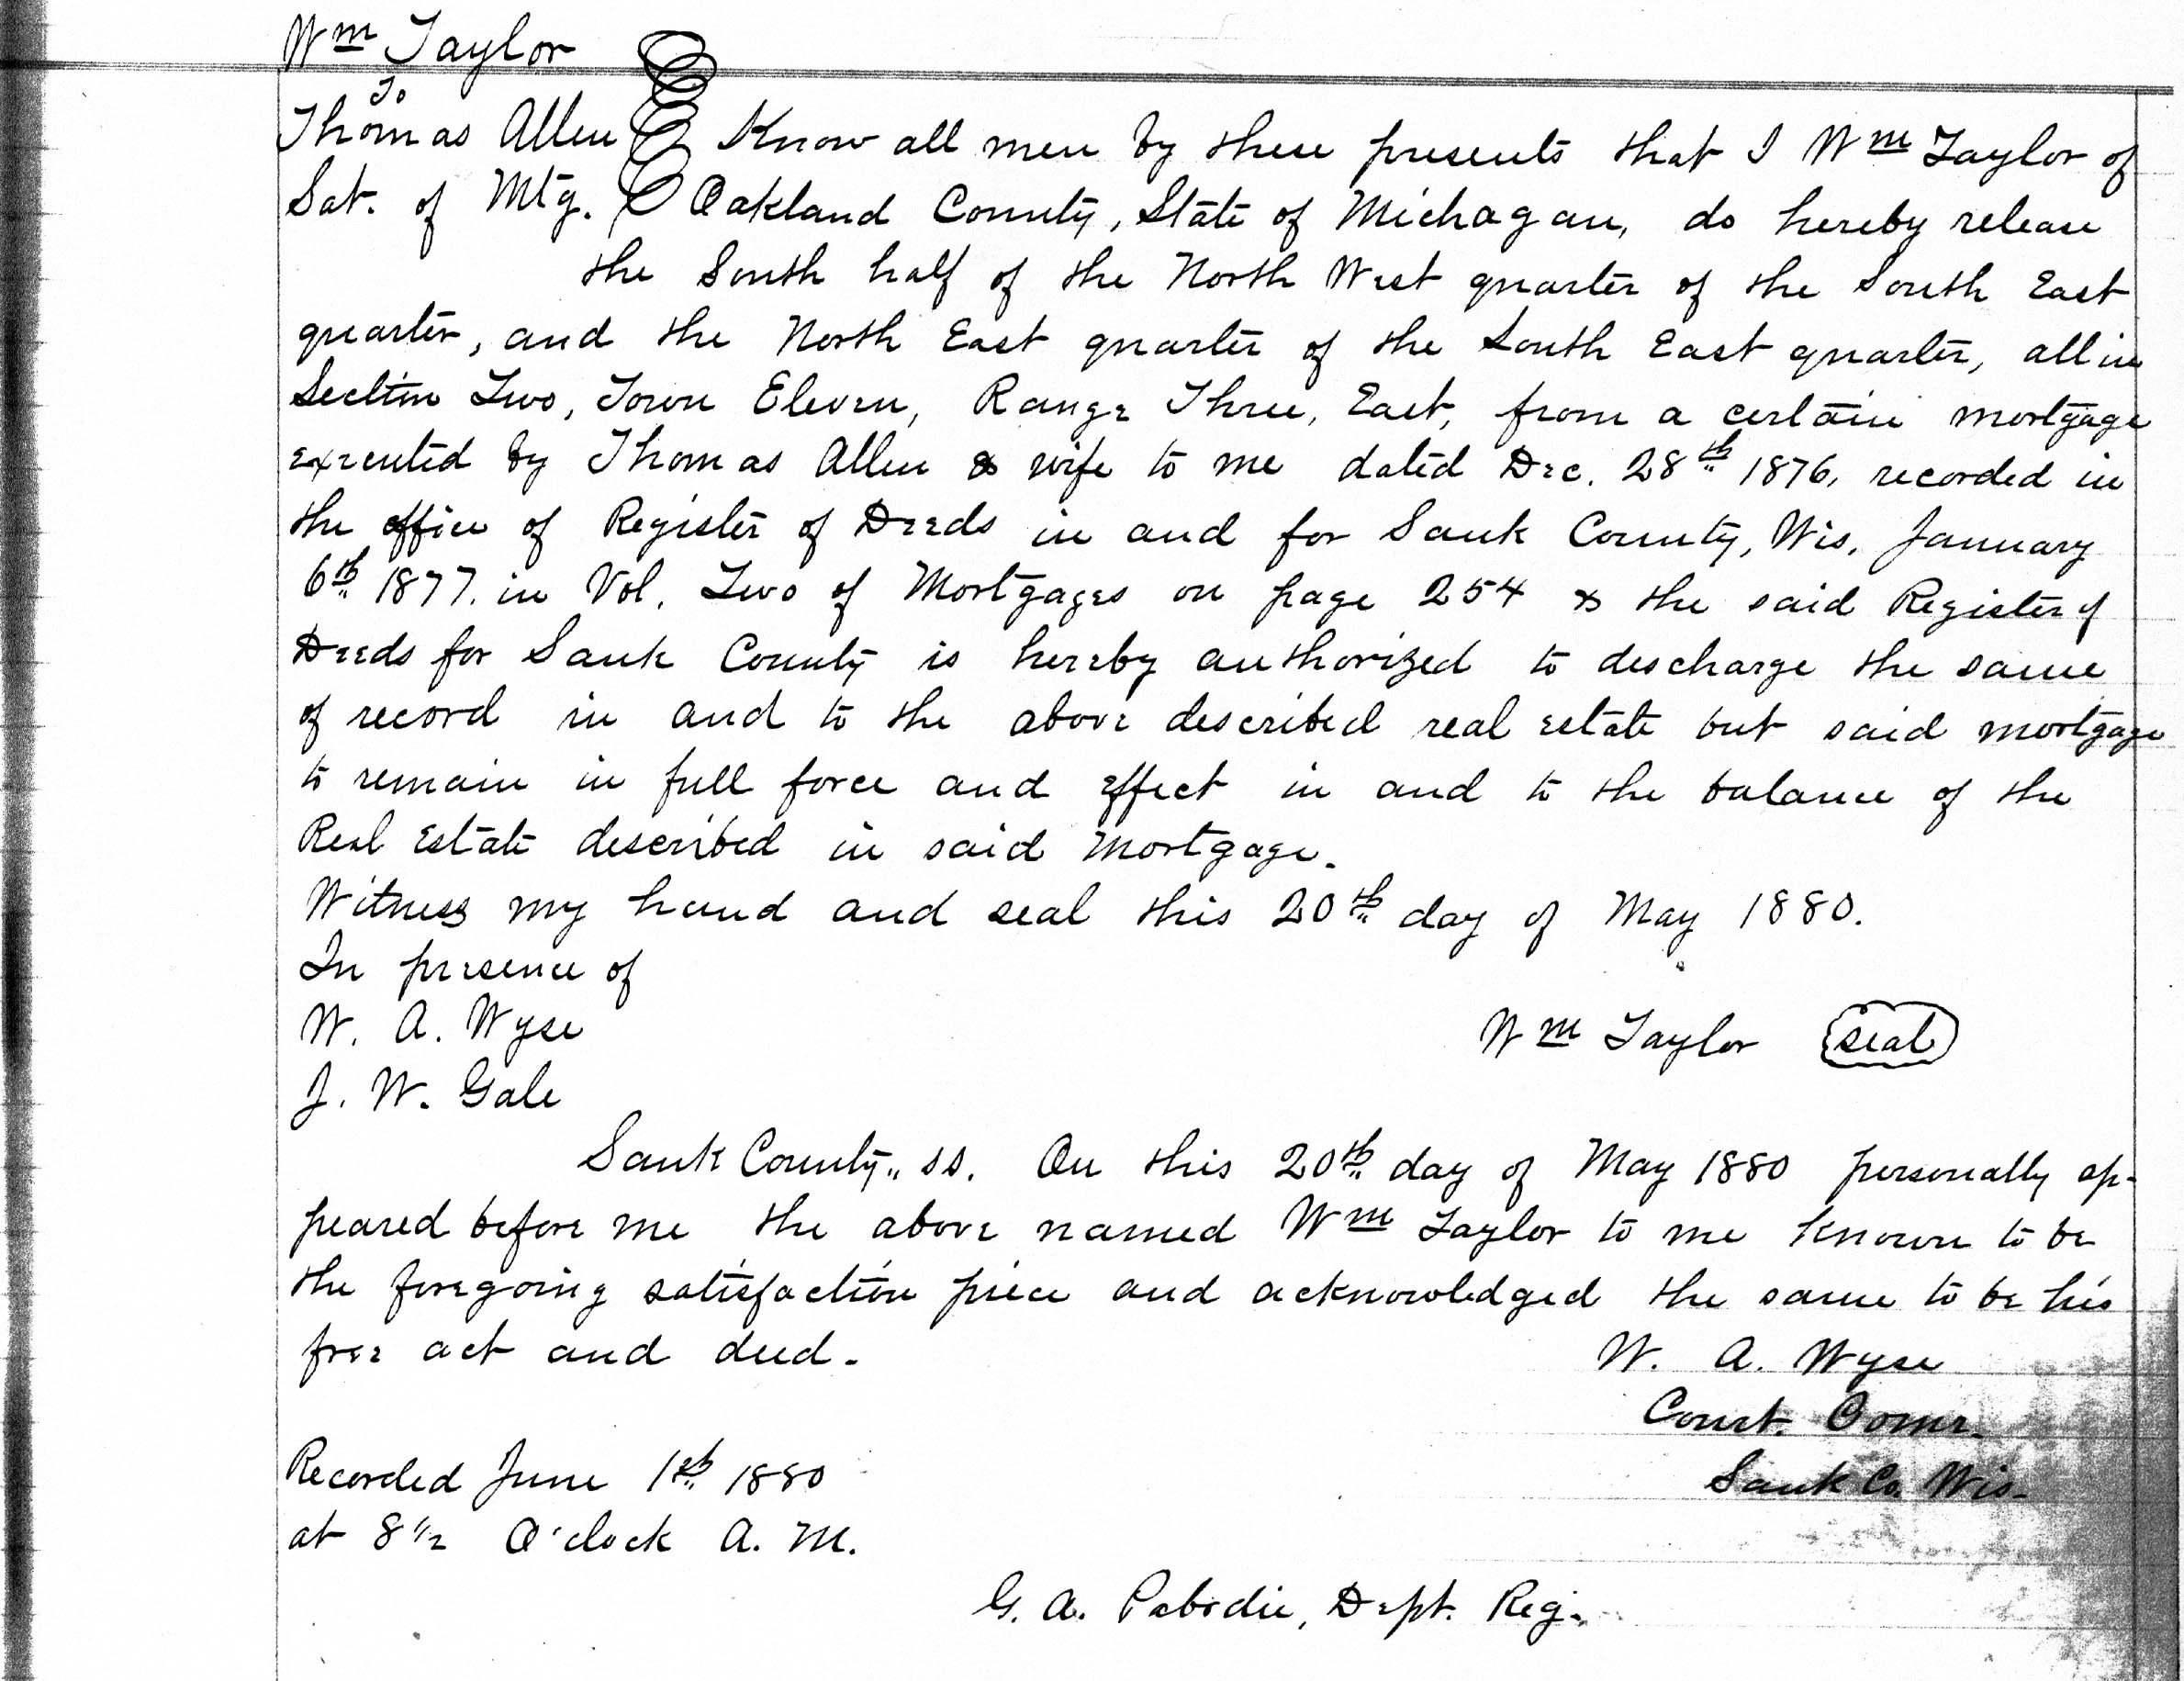 Wm Taylor
To
Thomas Allen Know all men by these presents that I Wm Taylor of
Sat. of Mtg. Oakland County, State of Michagan, do hereby release
the South half of the North West quarter of the South East
quarter, and the North East quarter of the South East quarter, all in
Section Two, Town Eleven, Range Three, East, from a certain mortgage
executed by Thomas Allen & wife to me dated Dec. 28th 1876, recorded in
the office of Register of Deeds in and for Sauk County, Wis, January
6th 1877. in Vol. Two of Mortgages on page 254 & the said Register of
Deeds for Sauk County is hereby authorized to descharge the same
of record in and to the above described real estate but said mortgage
to remain in full force and effect in and to the balance of the
Real Estate described in said Mortgage.
Witness my hand and seal this 20th day of May 1880.
In presence of
W. A. Wyse
Wm Taylor seal
J. W. Gale
Sauk County,, ss. On this 20th day of May 1880 personally ap-
peared before me the above named Wm Taylor to me known to be
the foregoing satisfaction piece and acknowledged the same to be his
free act and deed.
W. A. Wyse
Court. Comr.
Sauk Co. Wis.
Recorded June 1st 1880
at 8 1/2 O'clock A. M.
G. A. Pabodie, Dept. Reg.